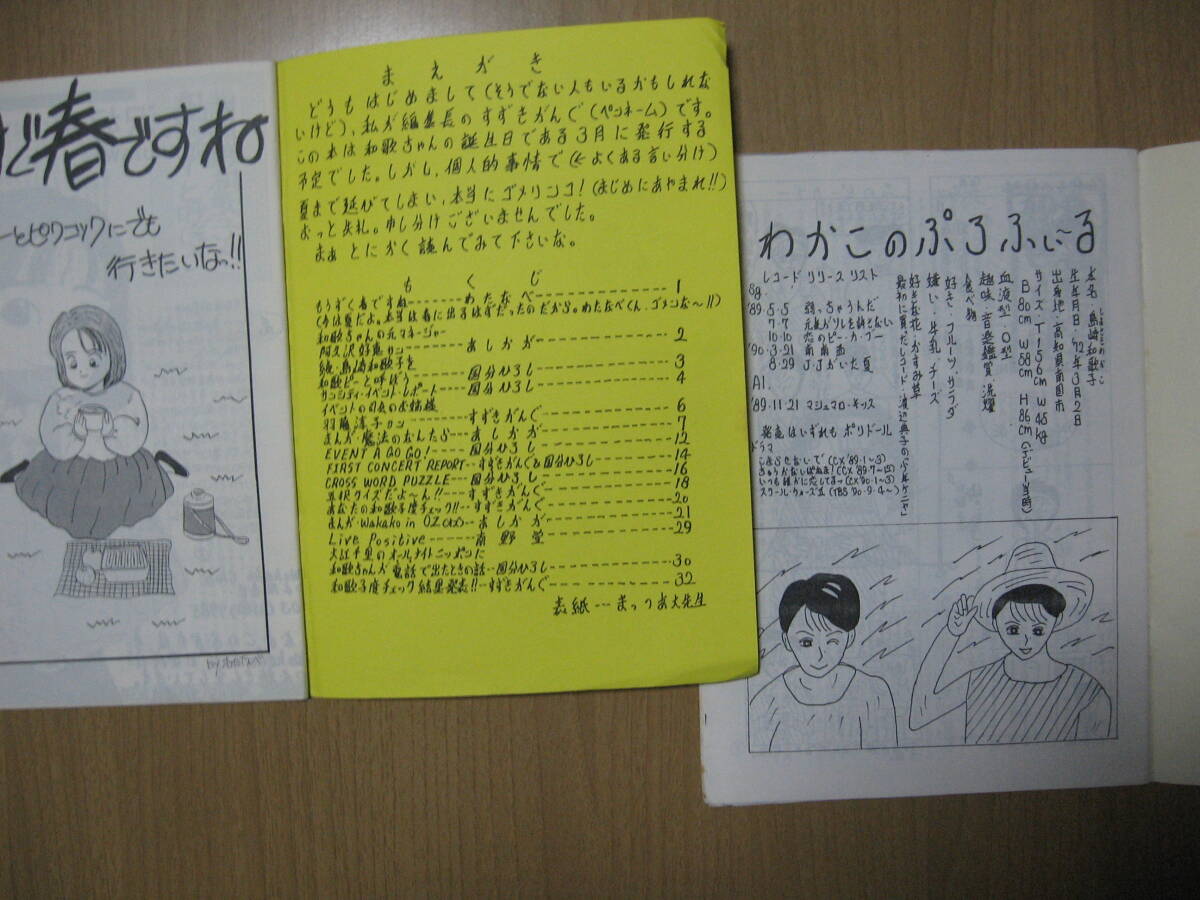 春ですね
ーとピクニックにでも
行きたいなっ!!
まえがき
どうもはじめまして(そうでない人もいるかもしれな
いけど)、私が編集長のすずきがんぐ(ペンネーム)です。
この本は和歌ちゃんの誕生日である3月に発行する
予定でした。しかし、個人的事情で(←よくある言い分け)
夏まで延びてしまい、本当にゴメリンコ!(まじめにあやまれ!!)
おっと失礼。申し分けございませんでした。
まぁとにかく読んでみて下さいな。
もくじ
もうすぐ春ですね------わたなべ------1
(今は夏だよ。本当は春に出るはずだったのだから。わたなべくん、ゴメンな〜!!)
和歌ちゃんの元マネージャー
------あしかが------2
純・島崎和歌子を
和歌ピーと呼ぼう------国分ひろし------3
サンシティ・イベント・レポート---国分ひろし------4
イベントの司会のお姉様
羽篠洋子サン------すずきがんぐ------6
まんが・魔法のなんたら---あしかが------7
EVENT A GO GO!---国分ひろし------12
FIRST CONCERT REPORT---すずきがんぐ&国分ひろし------14
CROSS WORD PUZZLE---国分ひろし------16
三択クイズだよ〜ん!!---すずきがんぐ------18
あなたの和歌子度チェック!!---すずきがんぐ------20
まんが・Wakako in OZ---あしかが------21
Live Positive---南野堂------29
大江千里のオールナイトニッポンに
和歌ちゃんが電話で出たときの話---国分ひろし------30
和歌子度チェック結果発表!!---すずきがんぐ------32
表紙---まっつあ大先生
わかこのぷろふぃ〜る
本名・島崎和歌子
生年月日・'72年3月2日
出身地・高知県南国市
サイズ・T 156cm W 45kg
B 80cm W 58cm H 86cm (デビュー当時)
血液型・O型
趣味・音楽鑑賞・洗濯
食べ物
好き・フルーツ・サラダ
嫌い・牛乳・チーズ
好きな花・かすみ草
最初に買ったレコード・渡辺典子の「少年ケニヤ」
レコードリリースリスト
Sg.
'89・5・5 弱っちゃうんだ
7・7 元気がりしを許さない
10・10 恋のピー・カ・ブー
'90・3・21 南南西
8・29 J.J.かいた夏
Al.
'89・11・21 マシュマロ・キッス
発売はいずれもポリドール
ドラマ
こまらせないで(CX '89・1〜3)
いつも誰かに恋してるッ(CX '90・1〜3)
スクール・ウォーズⅡ(TBS '90・9・4〜)